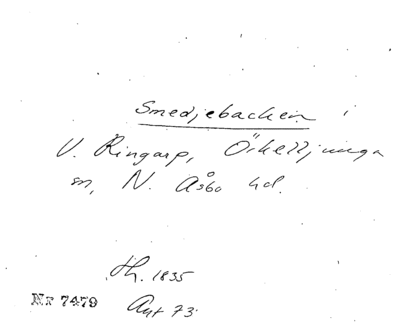 Smedjebacken i
V. Ringarp, Örkelljunga
sn, N. Åsbo hd.
th. 1835
Nr 7479 Avt 73